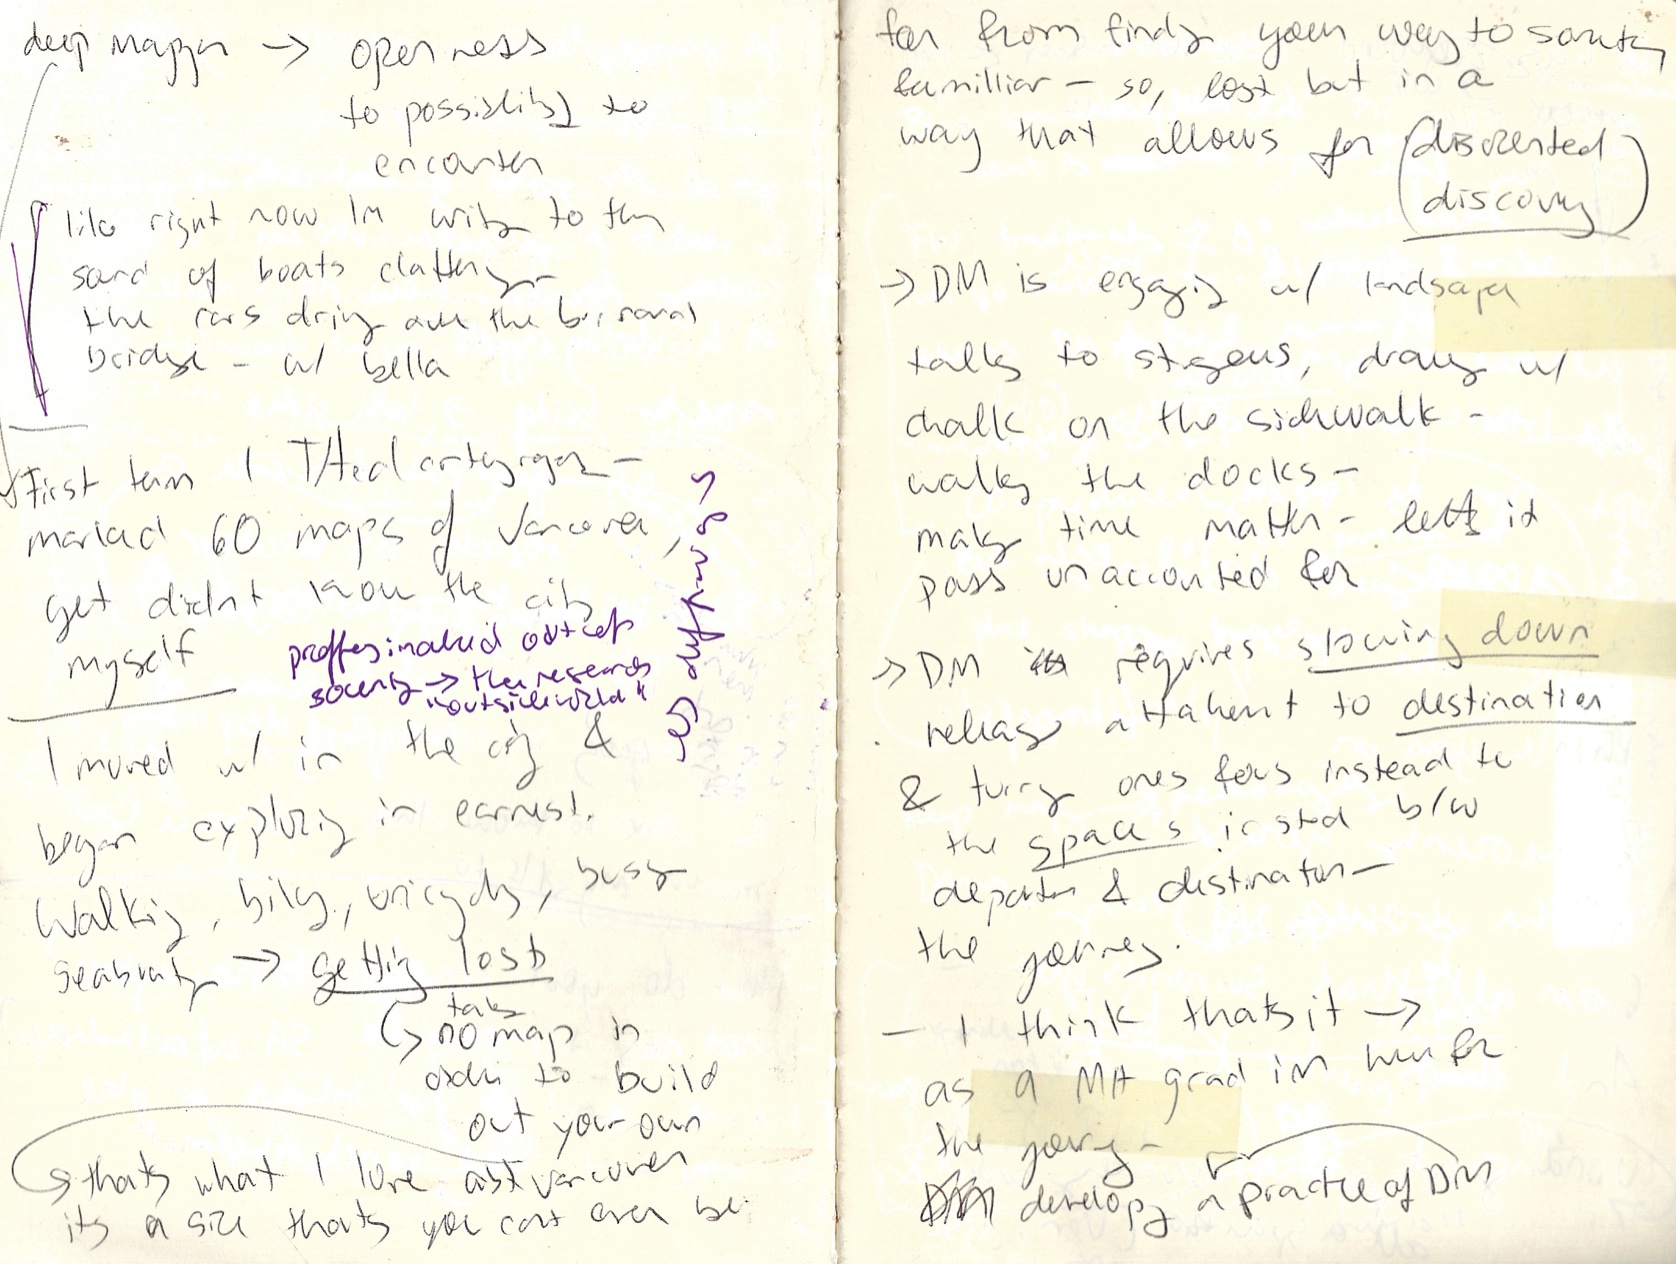 deep mapping → openness
to possibility to
encounter
like right now Im writing to the
sound of boats clattering
the cars driving over the burrard
bridge - w/ bella
First term I TA'ed cartography -
marked 60 maps of Vancouver,
yet didnt know the city
myself
proffesinalized
society → the research
"outside world"
I moved w/ in the city &
began exploring in earnest.
Walking, biking, unicycling, bussing
Seabusing → getting lost
takes
↳ no map in
order to build
out your own
→ thats what I love abt vancouver
its a size thats you cant ever be
far from finding your way to something
familliar - so, lost but in a
way that allows for (disoriented
discovery)
→ DM is engaging w/ landscape
talking to strangers, drawing w/
chalk on the sidewalk -
walking the docks -
making time matter - letting it
pass unaccounted for
→ DM requires slowing down
releasing attachment to destination
& turning ones focus instead to
the spaces instead b/w
departure & destination -
the journey.
- I think thats it →
as a MA grad im here for
the journey -
developing a practice of DM